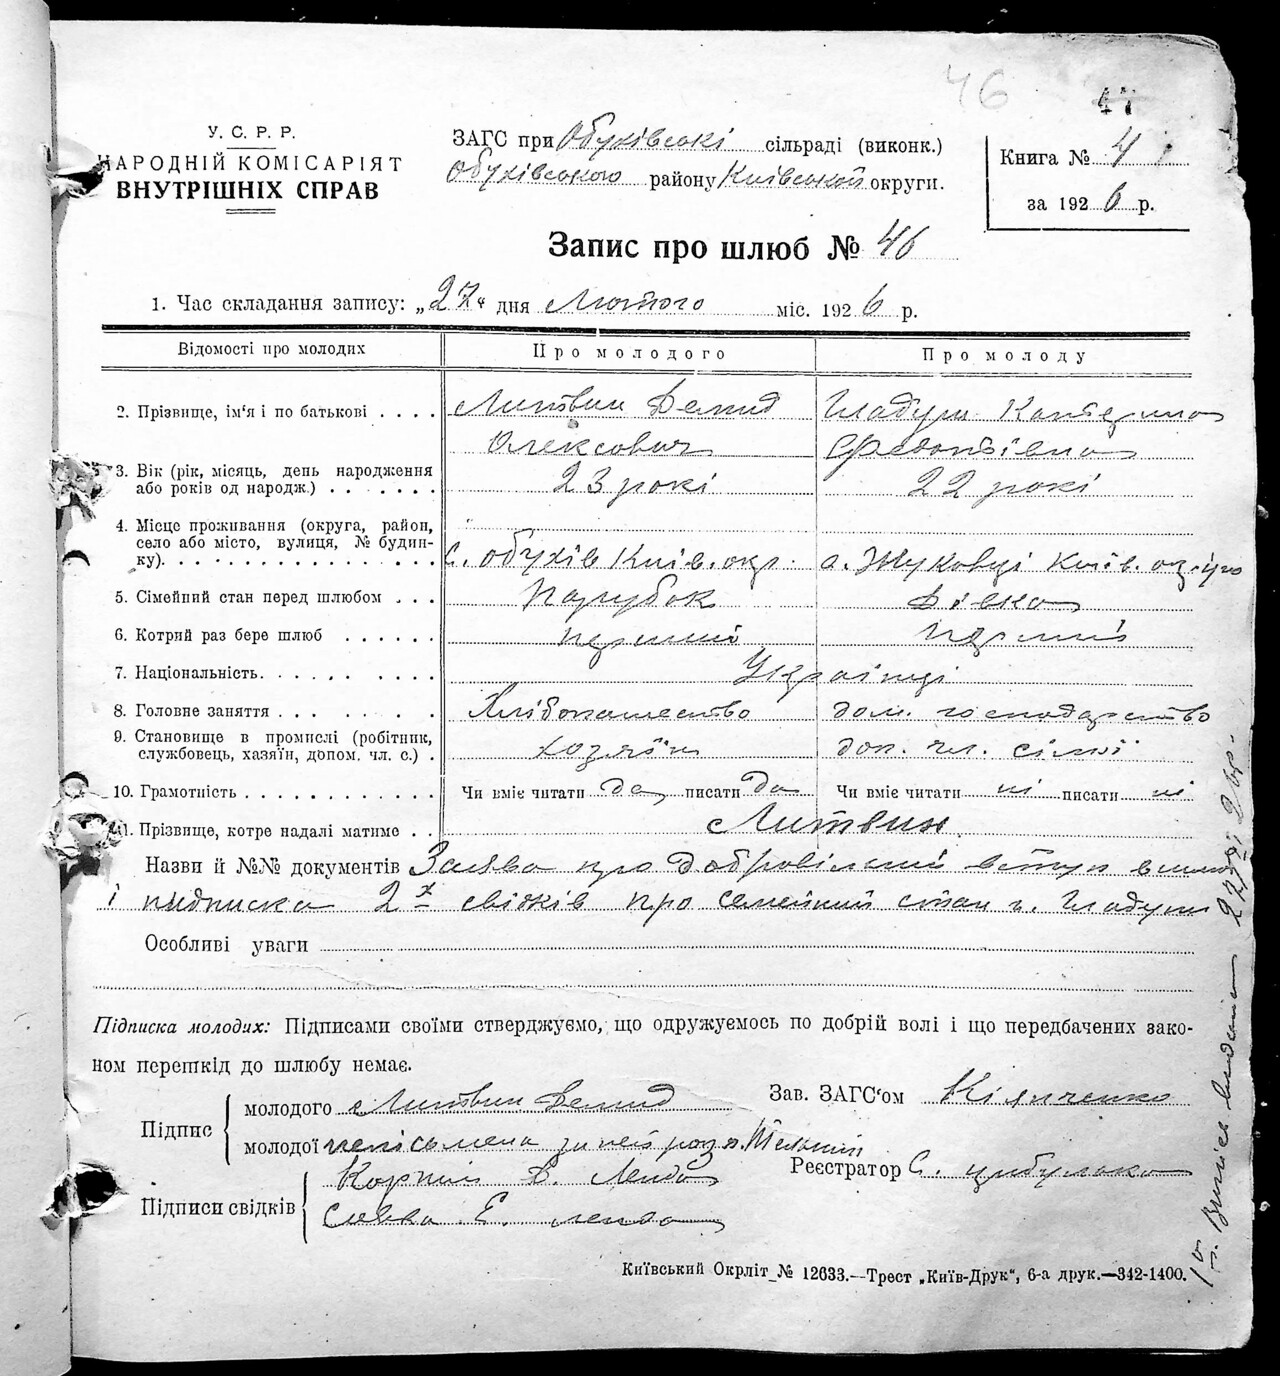 46 47
У. С. Р. Р.
НАРОДНІЙ КОМІСАРІЯТ
ВНУТРІШНІХ СПРАВ
ЗАГС при Обухівські сільраді (виконк.)
Обухівського району Київської округи.
Книга № 4
за 1926 р.
Запис про шлюб № 46
1. Час складання запису: „27" дня Лютого міс. 1926 р.
Відомості про молодих Про молодого Про молоду
2. Прізвище, ім'я і по батькові . . . . Литвин Демид Гладуш Катерина
Олексович Федотівна
3. Вік (рік, місяць, день народження
або років од народж.) . . . . . . 23 рокі 22 рокі
4. Місце проживання (округа, район,
село або місто, вулиця, № будин-
ку). . . . . . . . . . . . . . . . с. Обухів Київ. окр. с. Жуковці Київ. окр.
5. Сімейний стан перед шлюбом . . . Парубок Дівка
6. Котрий раз бере шлюб . . . . . . перший перший
7. Національність. . . . . . . . . . Українці
8. Головне заняття . . . . . . . Хлібопашество дом. господарство
9. Становище в промислі (робітник,
службовець, хазяїн, допом. чл. с.) . хозяїн доп. чл. сімї
10. Грамотність . . . . . . . . . . . Чи вміє читати да писати да Чи вміє читати ні писати ні
11. Прізвище, котре надалі матиме . . Литвин
Назви й №№ документів Заява про добровільний вступ в шлюб
і підписка 2х свідків про семейний стан г. Гладуш
Особливі уваги
Підписка молодих: Підписами своїми стверджуємо, що одружуємось по добрій волі і що передбачених зако-
ном перешкід до шлюбу немає.
Підпис
молодого Литвин Демид
молодої неписьмена за неї розп.
Підписи свідків
Корній Д. Ленда
Савва Е. Ленда
Зав. ЗАГС'ом Кіяниченко
Реєстратор С. Цибулько
Київський Окрліт № 12633.—Трест „Київ-Друк", 6-а друк.—342-1400.